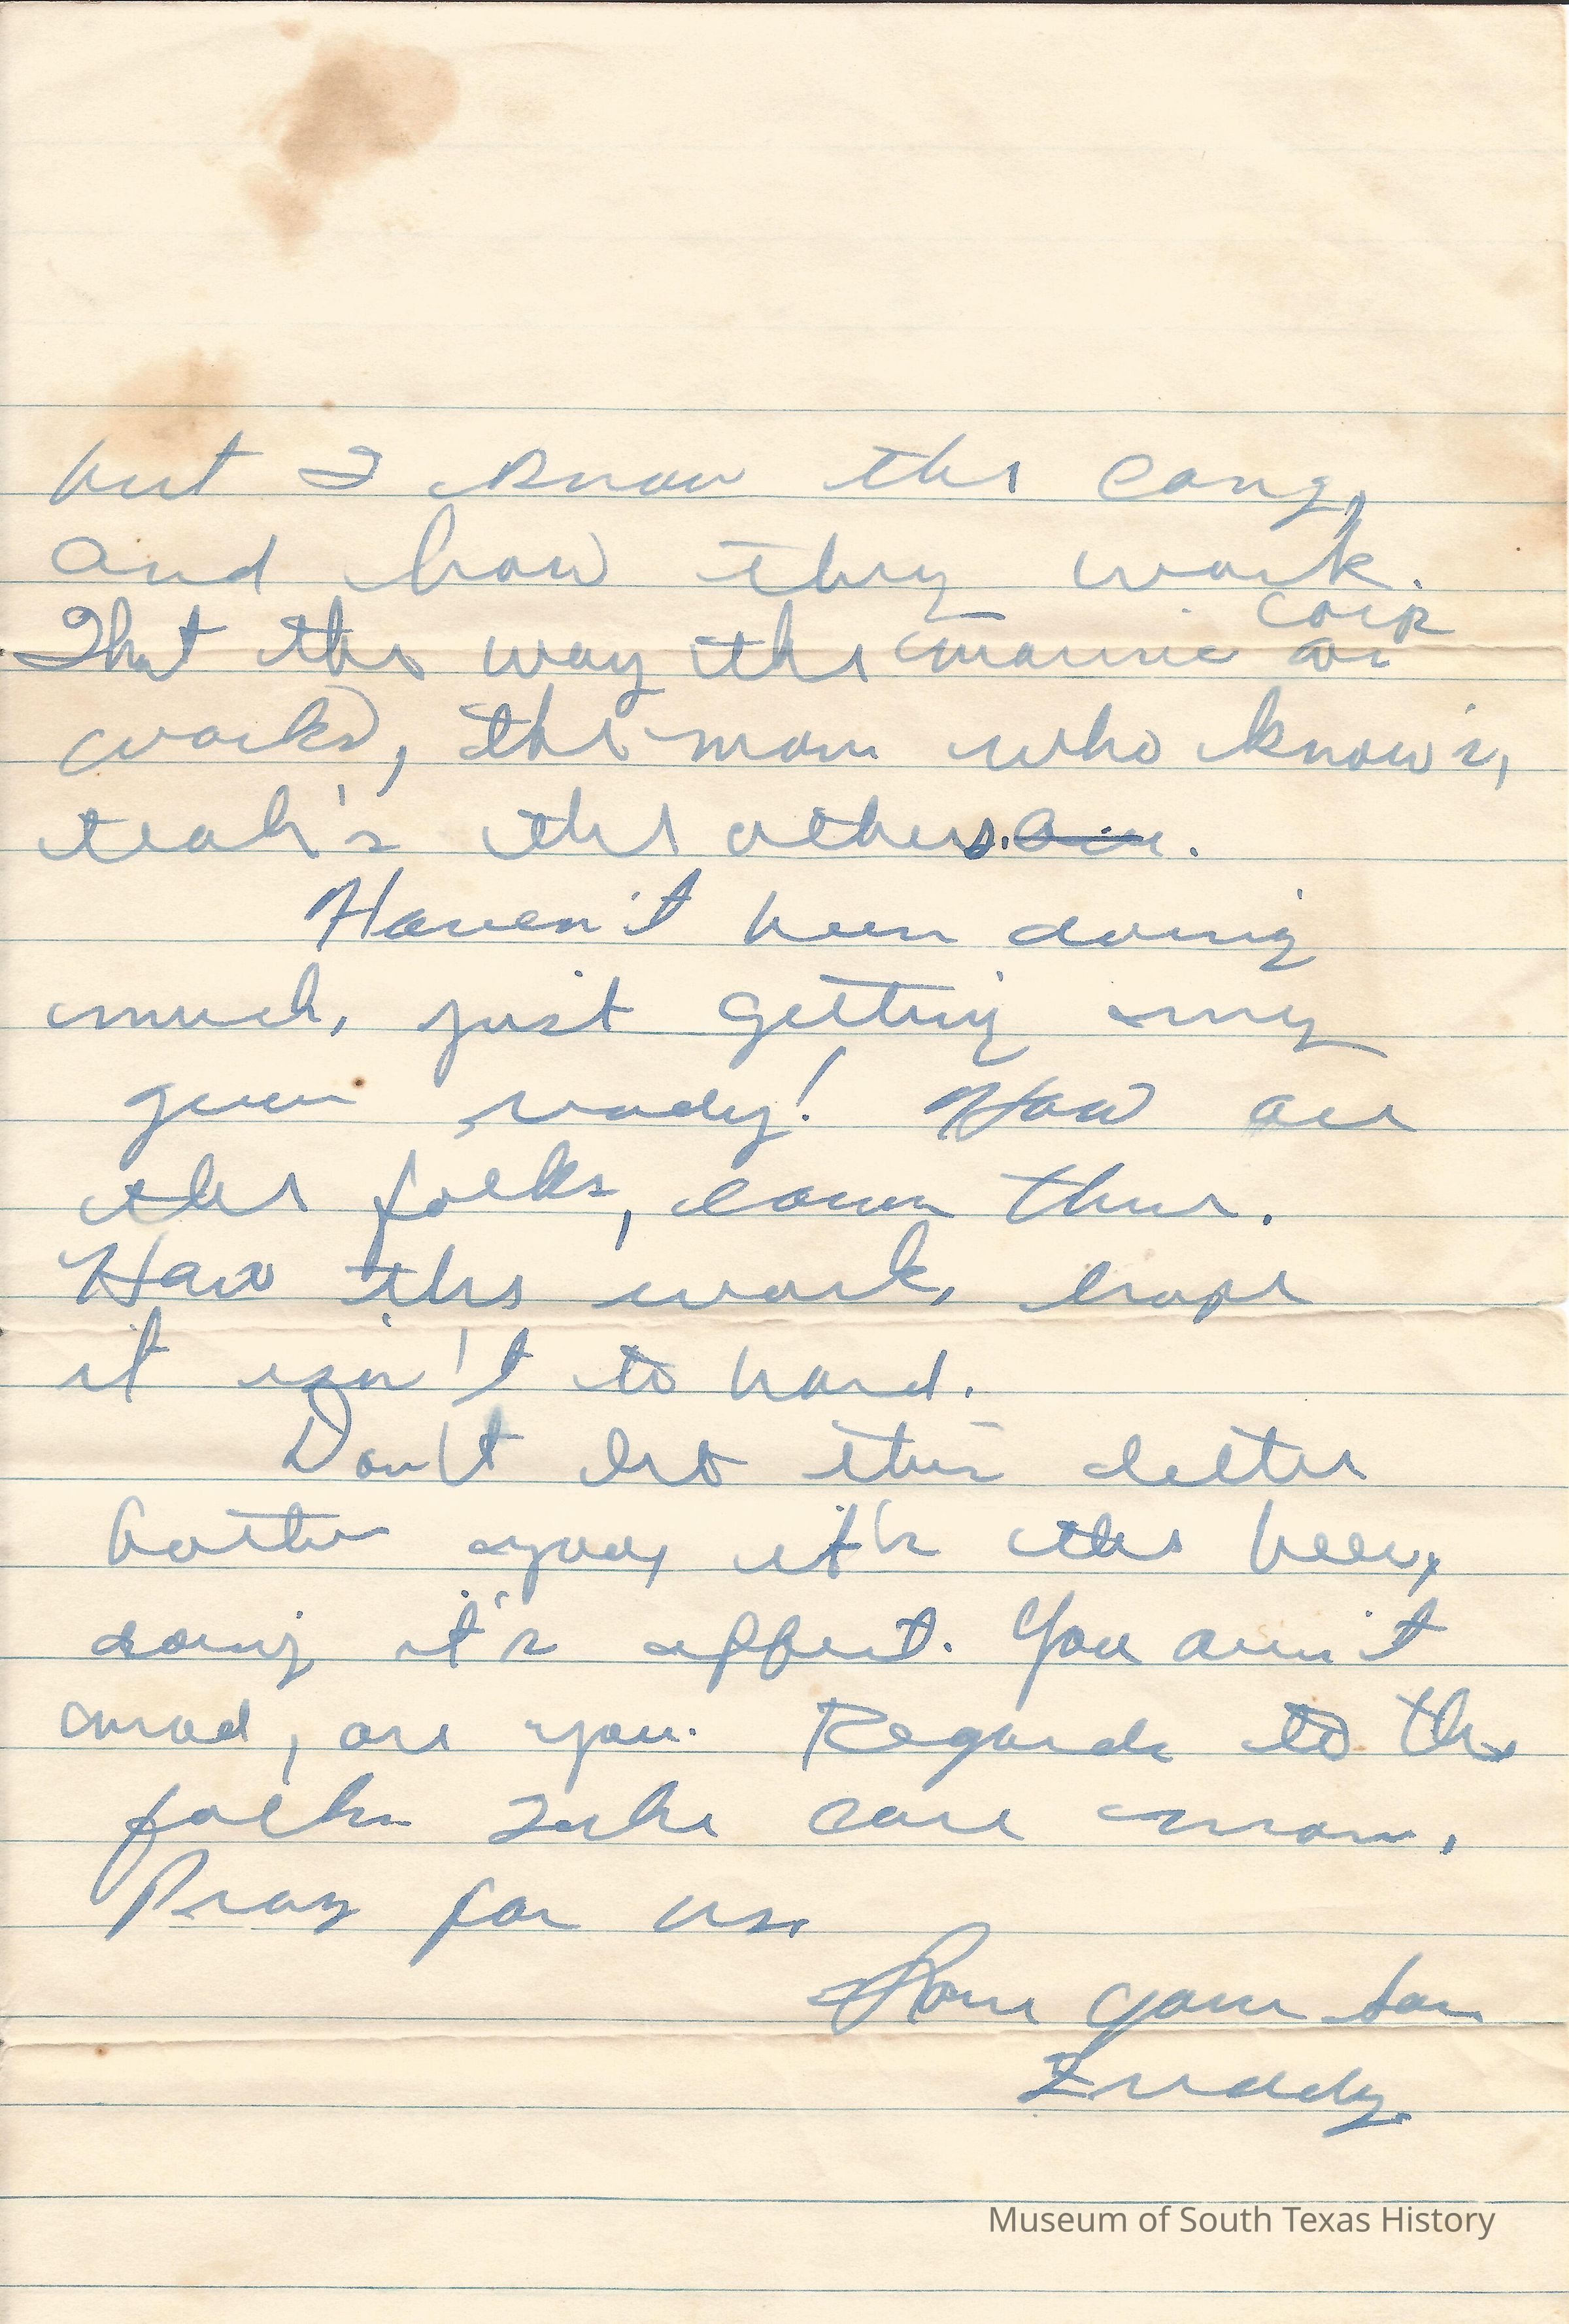 but I know the cong,
and how they work.
That the way the marine corp
works, the man who know's,
teah's the others.
Haven't been doing
much, just getting my
gun ready! How are
the folks, down there.
How the work, hope
it isn't to hard.
Don't let this letter
bother you, it's the beer,
doing it's affect. You ain't
mad, are you. Regards to the
folks Take care mom.
Pray for us.
Love your son
Freddy
Museum of South Texas History